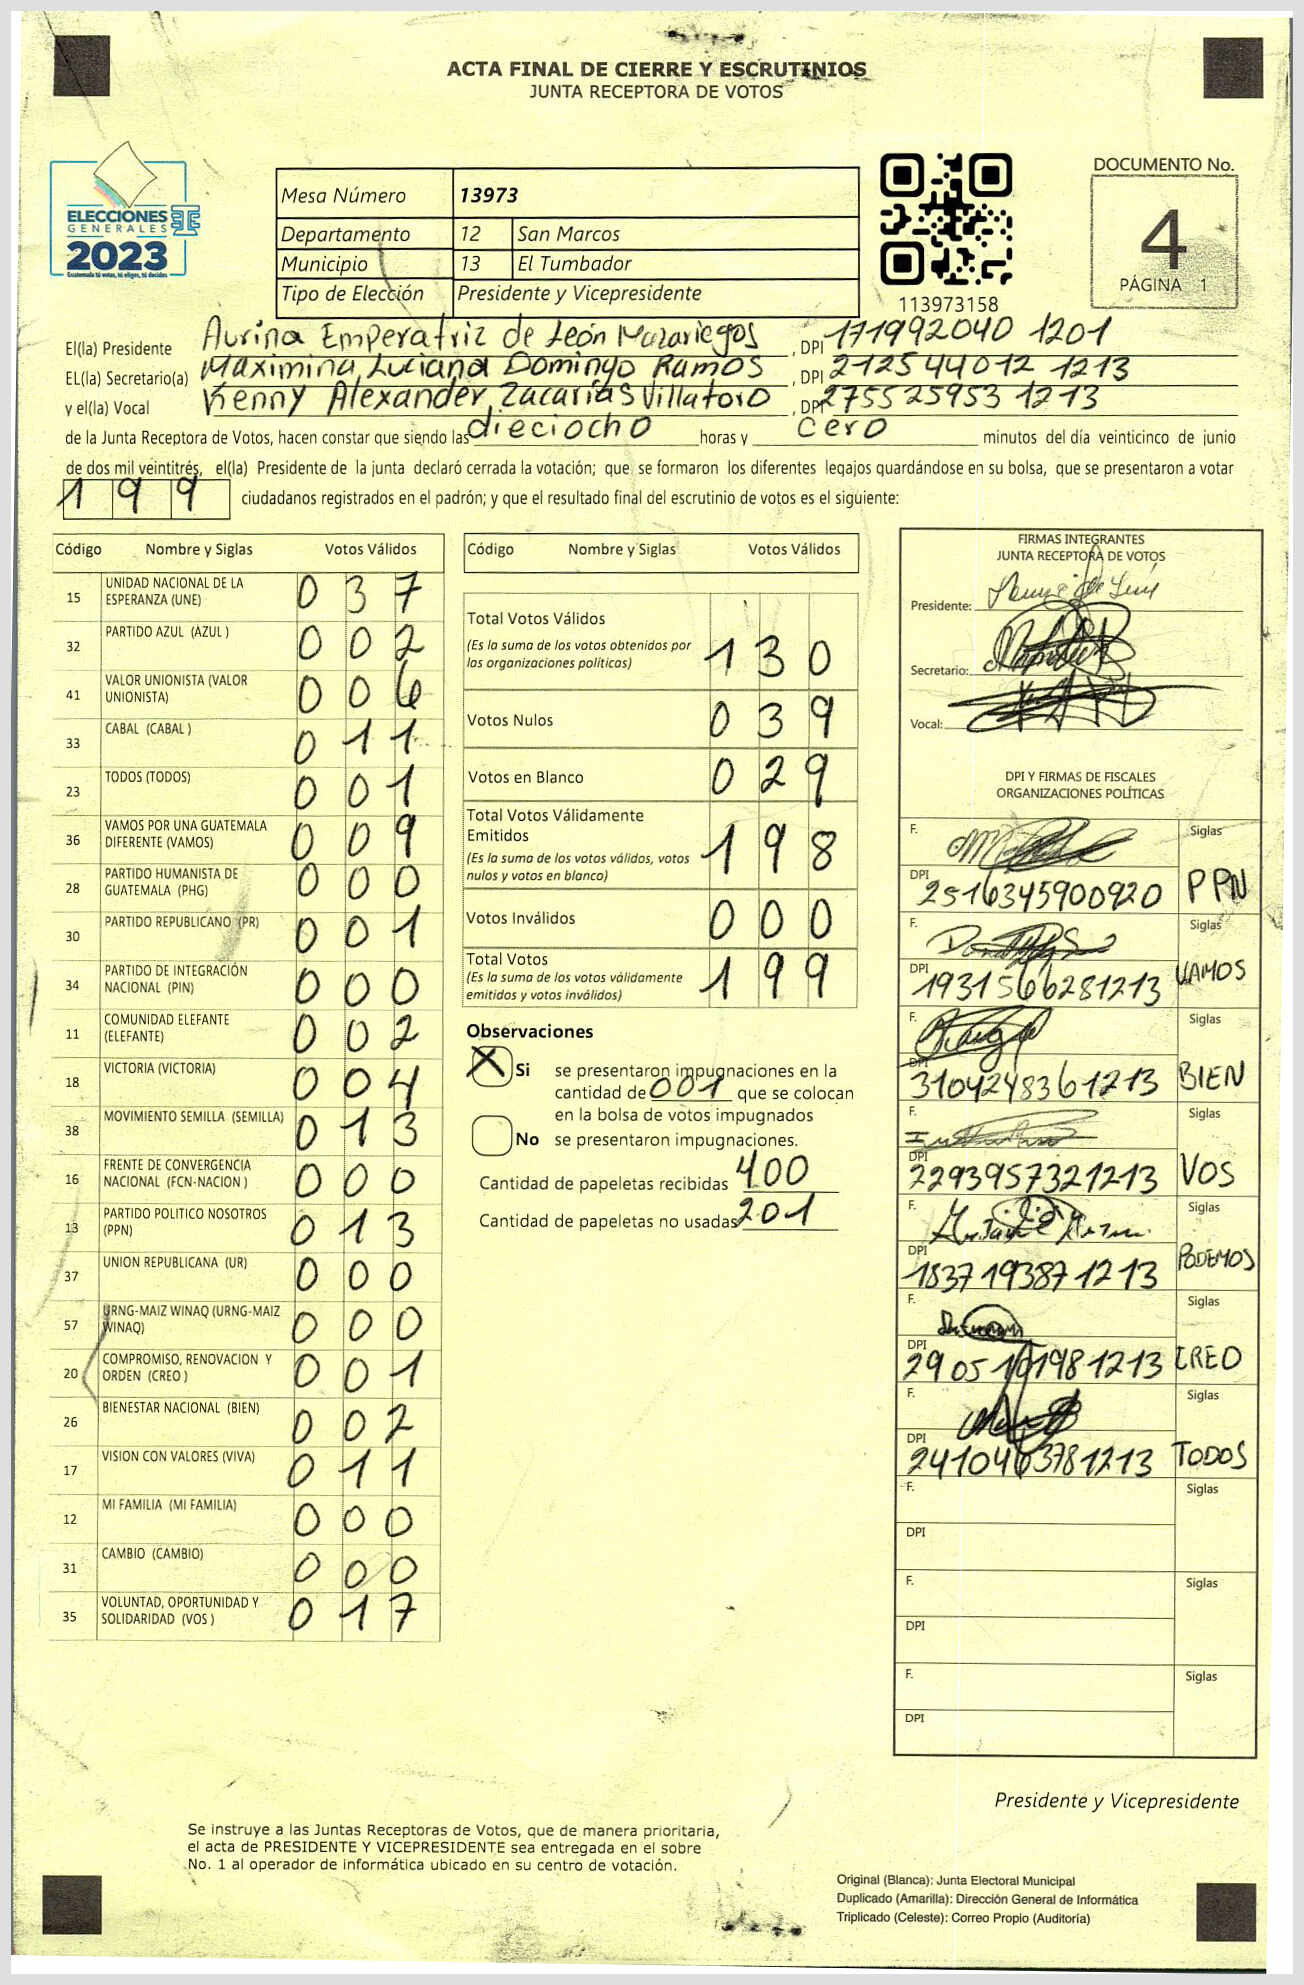 ACTA FINAL DE CIERRE Y ESCRUTINIOS
JUNTA RECEPTORA DE VOTOS
ELECCIONES
GENERALES
2023
Guatemala tú votas, tú eliges, tú decides
Mesa Número 13973
Departamento 12 San Marcos
Municipio 13 El Tumbador
Tipo de Elección Presidente y Vicepresidente
113973158
DOCUMENTO No.
4
PÁGINA 1
El(la) Presidente Aurina Emperatriz de León Mazariegos, DPI 171992040 1201
EL(la) Secretario(a) Maximina Luciana Domingo Ramos, DPI 212544012 1213
y el(la) Vocal Kenny Alexander Zacarías Villatoro, DPI 275525953 1213
de la Junta Receptora de Votos, hacen constar que siendo las dieciocho horas y cero minutos del día veinticinco de junio
de dos mil veintitrés, el(la) Presidente de la junta declaró cerrada la votación; que se formaron los diferentes legajos quardándose en su bolsa, que se presentaron a votar
199 ciudadanos registrados en el padrón; y que el resultado final del escrutinio de votos es el siguiente:
Código Nombre y Siglas Votos Válidos
15 UNIDAD NACIONAL DE LA ESPERANZA (UNE) 037
32 PARTIDO AZUL (AZUL ) 002
41 VALOR UNIONISTA (VALOR UNIONISTA) 006
33 CABAL (CABAL ) 011
23 TODOS (TODOS) 001
36 VAMOS POR UNA GUATEMALA DIFERENTE (VAMOS) 009
28 PARTIDO HUMANISTA DE GUATEMALA (PHG) 000
30 PARTIDO REPUBLICANO (PR) 001
34 PARTIDO DE INTEGRACIÓN NACIONAL (PIN) 000
11 COMUNIDAD ELEFANTE (ELEFANTE) 002
18 VICTORIA (VICTORIA) 004
38 MOVIMIENTO SEMILLA (SEMILLA) 013
16 FRENTE DE CONVERGENCIA NACIONAL (FCN-NACION ) 000
13 PARTIDO POLITICO NOSOTROS (PPN) 013
37 UNION REPUBLICANA (UR) 000
57 URNG-MAIZ WINAQ (URNG-MAIZ WINAQ) 000
20 COMPROMISO, RENOVACION Y ORDEN (CREO ) 001
26 BIENESTAR NACIONAL (BIEN) 002
17 VISION CON VALORES (VIVA) 011
12 MI FAMILIA (MI FAMILIA) 000
31 CAMBIO (CAMBIO) 000
35 VOLUNTAD, OPORTUNIDAD Y SOLIDARIDAD (VOS ) 017
Código Nombre y Siglas Votos Válidos
Total Votos Válidos
(Es la suma de los votos obtenidos por
las organizaciones políticas) 130
Votos Nulos 039
Votos en Blanco 029
Total Votos Válidamente
Emitidos
(Es la suma de los votos válidos, votos
nulos y votos en blanco) 198
Votos Inválidos 000
Total Votos
(Es la suma de los votos válidamente
emitidos y votos inválidos) 199
Observaciones
X Si se presentaron impugnaciones en la
cantidad de 001 que se colocan
en la bolsa de votos impugnados
No se presentaron impugnaciones.
Cantidad de papeletas recibidas 400
Cantidad de papeletas no usadas 201
FIRMAS INTEGRANTES
JUNTA RECEPTORA DE VOTOS
Presidente:
Secretario:
Vocal:
DPI Y FIRMAS DE FISCALES
ORGANIZACIONES POLÍTICAS
F. Siglas
DPI 2516345900920 PPN
F. Siglas
DPI 1931566281213 VAMOS
F. Siglas
DPI 3104248361213 BIEN
F. Siglas
DPI 2293957321213 VOS
F. Siglas
DPI 1837193871213 PODEMOS
F. Siglas
DPI 2905101981213 CREO
F. Siglas
DPI 2410463781213 TODOS
F. Siglas
DPI
F. Siglas
DPI
F. Siglas
DPI
Presidente y Vicepresidente
Se instruye a las Juntas Receptoras de Votos, que de manera prioritaria,
el acta de PRESIDENTE Y VICEPRESIDENTE sea entregada en el sobre
No. 1 al operador de informática ubicado en su centro de votación.
Original (Blanca): Junta Electoral Municipal
Duplicado (Amarilla): Dirección General de Informática
Triplicado (Celeste): Correo Propio (Auditoría)